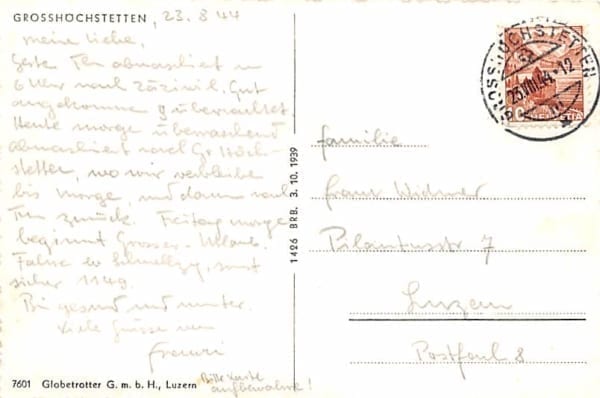 GROSSHÖCHSTETTEN, 23.8.44
meine Liebe,
Gestern Thun abmarschiert um
6 Uhr nach Zäziwil. Gut
angekommen & übernachtet.
Heute morge
abmarschiert nach Gr. Höch-
stetten, wo wir verbleibe
bis morge, und dann nach
Tun zurück. Freitag morge
beginnt Grosser-Urlaub.
Fahre ev Schnellzug, sonst
sicher 1149.
Bin gesund und munter.
Viele Grüsse von
7601 Globetrotter G. m. b. H., Luzern
Bitte Karte
aufbewahre!
1426 BRB. 3. 10. 1939
GROSSHÖCHSTETTEN
23.VIII.44-12
HELVETIA
familie
Franz Widmer
Pilatusstr 7
Luzern
Postfach 8